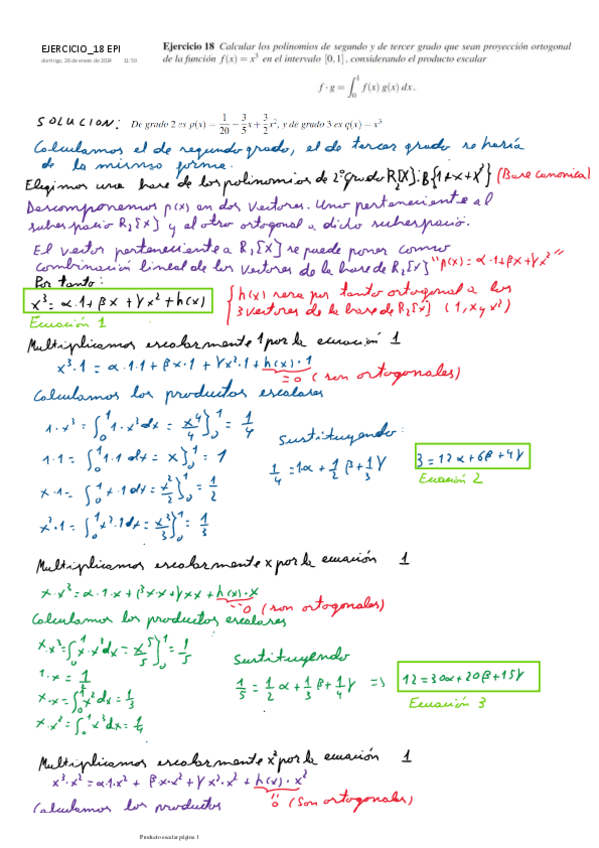 EJERCICIO_18 EPI
domingo, 28 de enero de 2024 11:50
Ejercicio 18 Calcular los polinomios de segundo y de tercer grado que sean proyección ortogonal
de la función f(x) = x³ en el intervalo [0,1], considerando el producto escalar
f · g = ∫₀¹ f(x) g(x) dx.
SOLUCION: De grado 2 es p(x) = 1/20 − 3/5 x + 3/2 x², y de grado 3 es q(x) = x³
Calculamos el de segundo grado, el de tercer grado se haría
de la misma forma.
Elegimos una base de los polinomios de 2º grado R₂[X]: B{1+x+x²} (Base canonica)
Descomponemos p(x) en dos vectores. Uno perteneciente al
subespacio R₂[x] y al otro ortogonal a dicho subespacio.
El vector perteneciente a R₂[x] se puede poner como
combinación lineal de los vectores de la base de R₂[x] "p(x) = α·1+βx+γx²"
Por tanto:
x³ = α·1 + βx + γx² + h(x)
{h(x) sera por tanto ortogonal a los
3 vectores de la base de R₂[x] (1, x y x²)
Ecuación 1
Multiplicamos escalarmente 1 por la ecuación 1
x³·1 = α·1·1 + βx·1 + γx²·1 + h(x)·1
=0 (son ortogonales)
Calculamos los productos escalares
1·x³ = ∫₀¹ 1·x³dx = x⁴/4]₀¹ = 1/4
1·1 = ∫₀¹ 1·1 dx = x]₀¹ = 1
x·1 = ∫₀¹ x·1dx = x²/2]₀¹ = 1/2
x²·1 = ∫₀¹ x²·1dx = x³/3]₀¹ = 1/3
Sustituyendo:
1/4 = 1α + 1/2 β + 1/3 γ
3 = 12α + 6β + 4γ
Ecuación 2
Multiplicamos escalarmente x por la ecuación 1
x·x³ = α·1·x + βx·x + γx·x + h(x)·x
=0 (son ortogonales)
Calculamos los productos escalares
x·x³ = ∫₀¹ x·x³dx = x⁵/5]₀¹ = 1/5
1·x = 1/2
x·x = ∫₀¹ x²dx = 1/3
x·x² = ∫₀¹ x³dx = 1/4
Sustituyendo
1/5 = 1/2 α + 1/3 β + 1/4 γ => 12 = 30α + 20β + 15γ
Ecuación 3
Multiplicamos escalarmente x² por la ecuación 1
x³·x² = α·1·x² + βx·x² + γx²·x² + h(x)·x²
=0 (son ortogonales)
Calculamos los productos
Producto escalar página 1